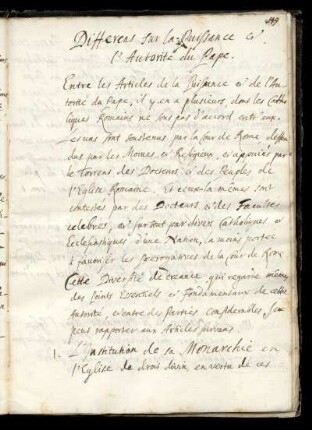 Differens sur la Puissance et
l'Autorité du Pape.
Entre les Articles de la Puissance et de l'Au-
torité du Pape, il y en a plusieurs, dont les Catho-
liques Romains ne sont pas d'accord entr'eux.
Les uns sont soutenus par la Cour de Rome deffen-
dus par les Moines, et Religieux, et appuiés par
le Torrent des Docteurs et des Peuples de
l'Eglise Romaine, Et ceux-la mêmes sont
contestés par des Docteurs et des Facultes
celebres, et sur tout par divers Catholiques et
Ecclesiastiques d'une Nation, la moins portée
à favoriser les de la Cour de Rome
Cette Diversité de creance qui regarde même
des Points Essentiels et Fondamentaux de cette
Autorité, et entre des Parties considerables, se
peut rapporter aux Articles suivans
1. L'Institution de sa Monarchie en
l'Eglise de droit divin, en vertu de ces